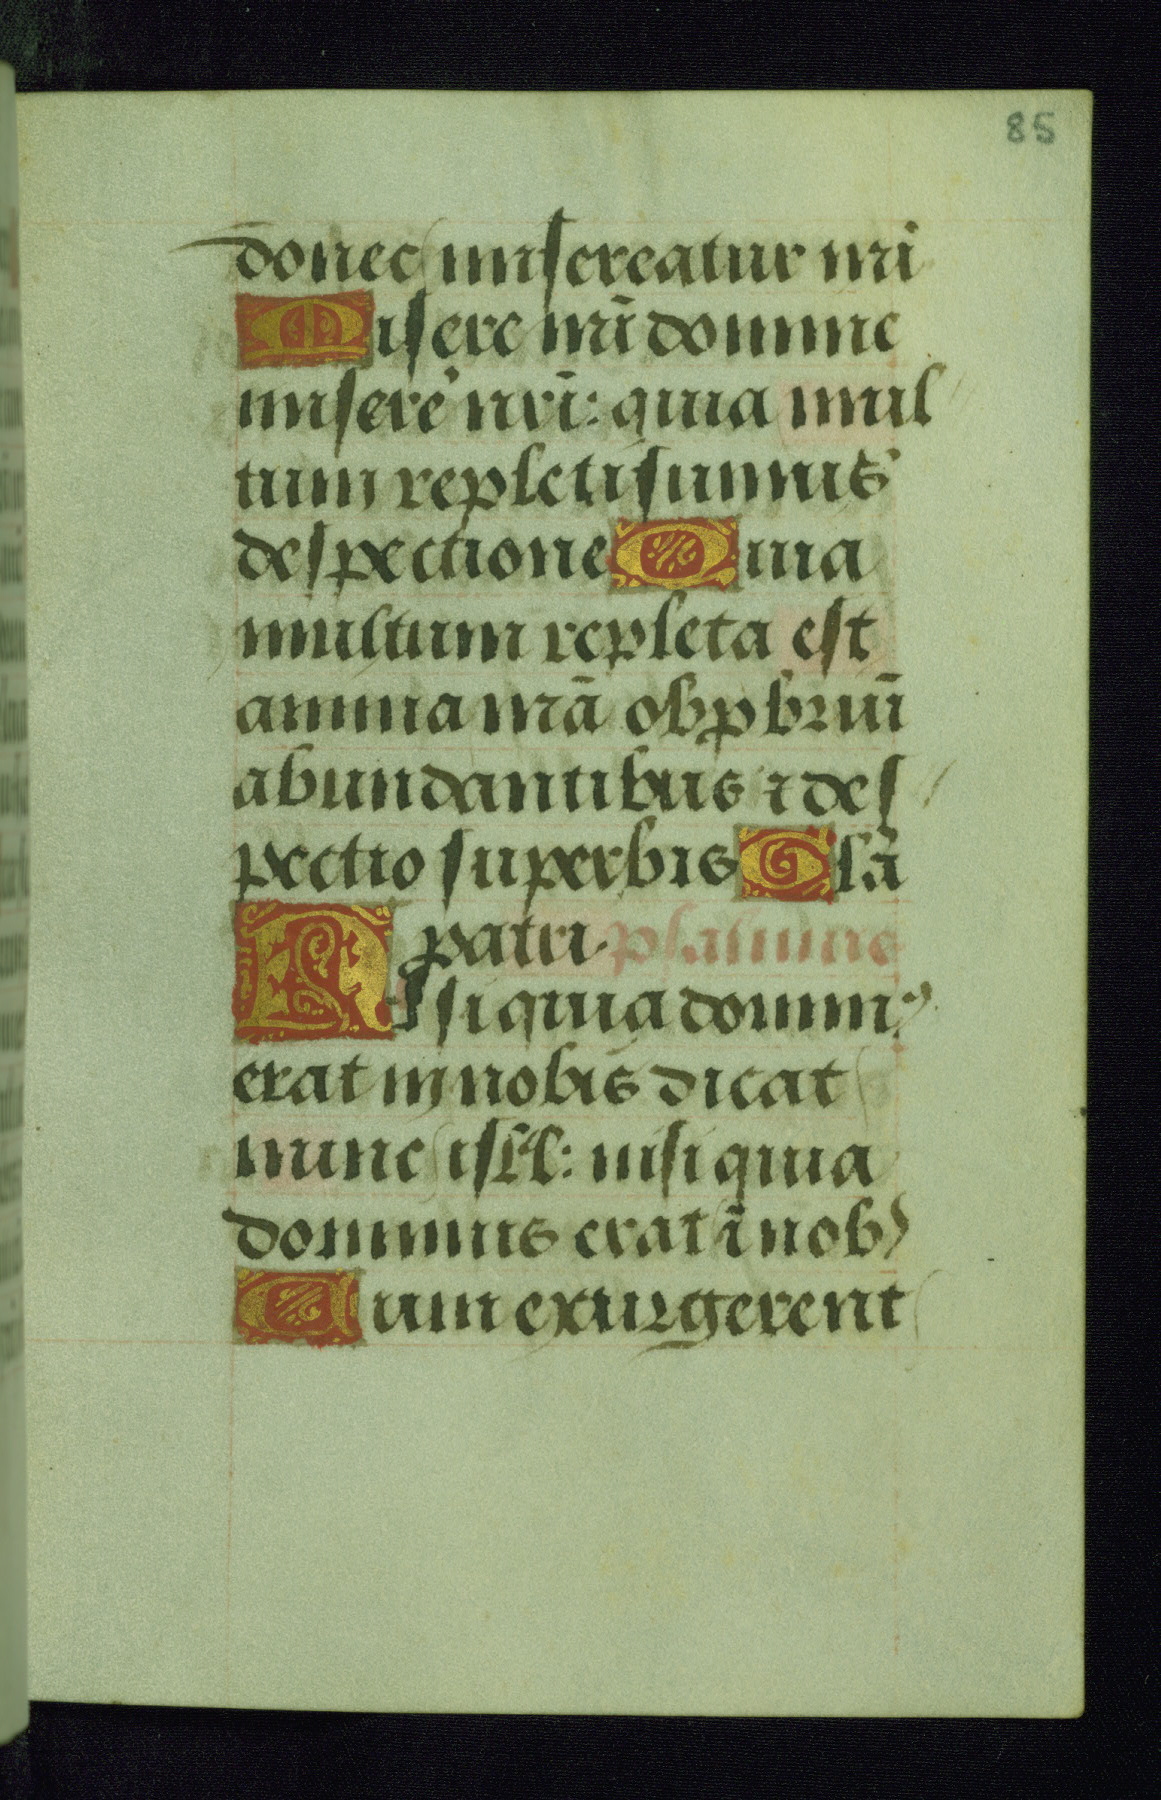 85
donec misereatur nri
Misere nrī domine
misere' nrī: quia mul
tum repleti sumus
despectione Quia
multum repleta est
anima nrā obꝓbriuī
abundantibus ⁊ des
pectio superbis Glā
patri. psalmus
Nisi quia domin9
erat in nobis dicat
nunc isrl: nisi quia
dominus erat ī nob
Cum exurgerent